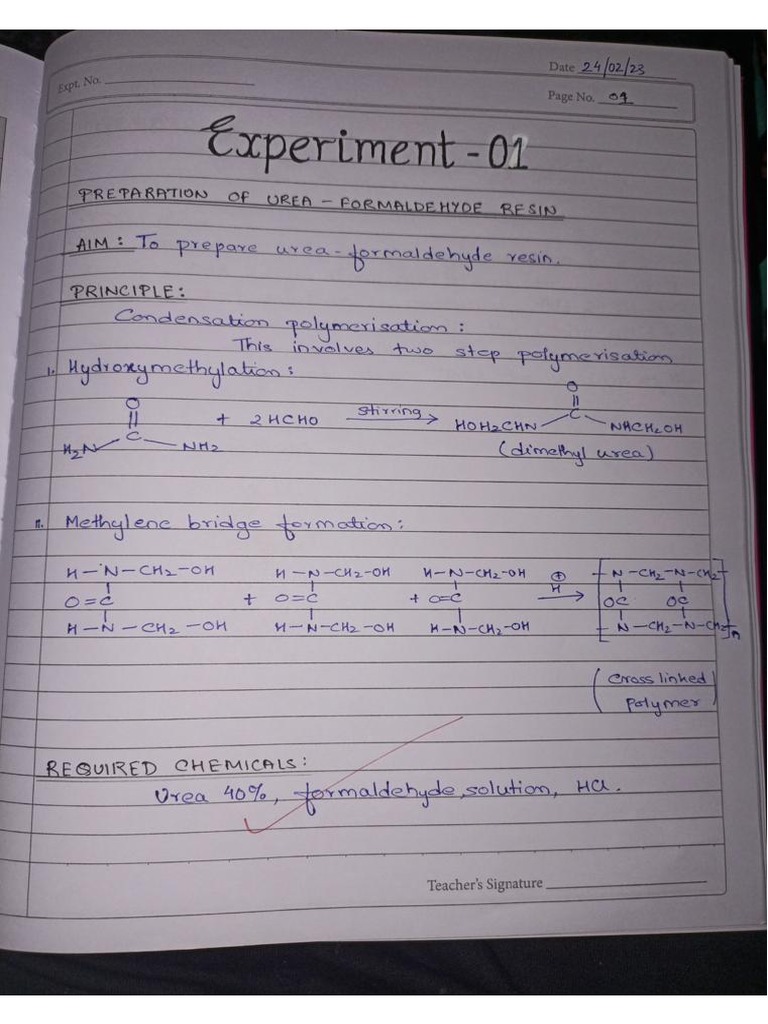 Date 24/02/23
Expt. No.
Page No. 01
Experiment - 01
PREPARATION OF UREA - FORMALDEHYDE RESIN
AIM : To prepare urea-formaldehyde resin.
PRINCIPLE :
Condensation polymerisation :
This involves two step polymerisation
I. Hydroxymethylation :
O
||
C
H2N NH2 + 2HCHO stirring → HOH2CHN
O
||
C
NHCH2OH
(dimethyl urea)
II. Methylene bridge formation :
H-N-CH2-OH H-N-CH2-OH H-N-CH2-OH ⊕ N-CH2-N-CH2
O=C + O=C + O=C H → OC OC
H-N-CH2-OH H-N-CH2-OH H-N-CH2-OH N-CH2-N-CH2 n
(Cross linked
Polymer)
REQUIRED CHEMICALS :
Urea 40%, formaldehyde, solution, HCl.
Teacher's Signature